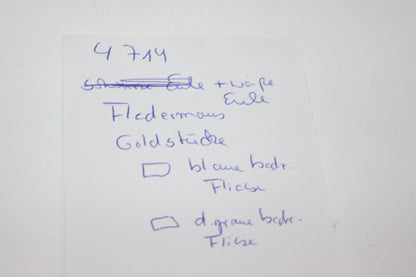 4 714
Eule + weiße
Eule
Fledermaus
Goldstücke
blaue bedr.
Fliese
d.graue bedr.
Fliese